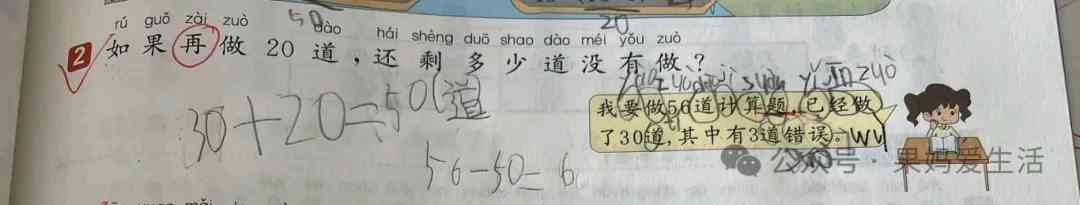 50
20
rú guǒ zài zuò dào hái shèng duō shao dào méi yǒu zuò
2 如果再做20道，还剩多少道没有做？
30+20=50(道
56-50=6
我要做56道计算题，已经做
了30道，其中有3道错误。
公众号·果妈爱生活